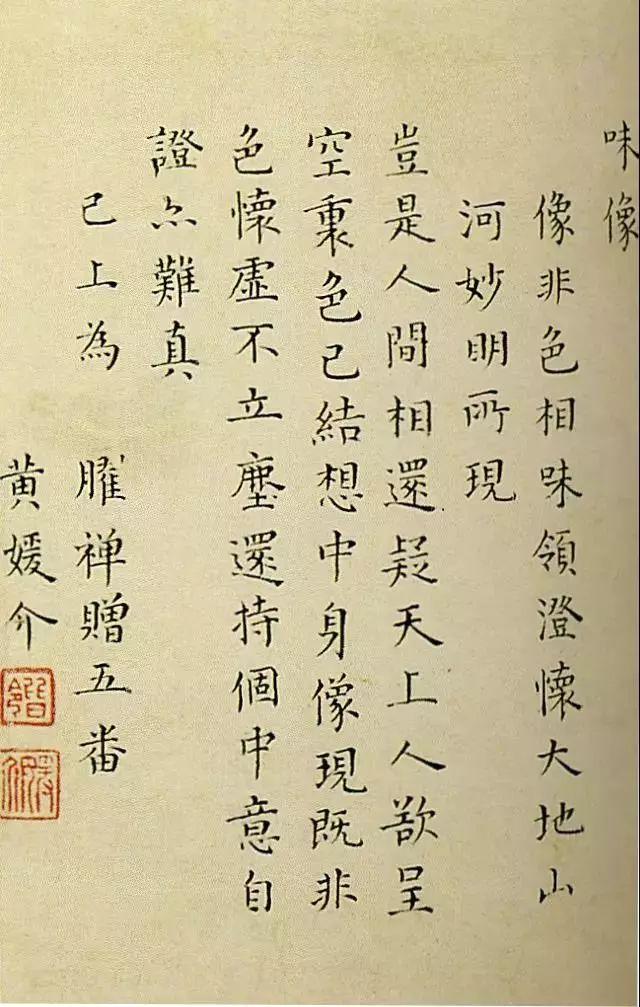 味像
像非色相味領澄懷大地山
河妙明所現
豈是人間相還疑天上人欲呈
空裏色已結想中身像現既非
色懷虛不立塵還持個中意自
證亦難真
已上為 臞禅贈五番
黄媛介